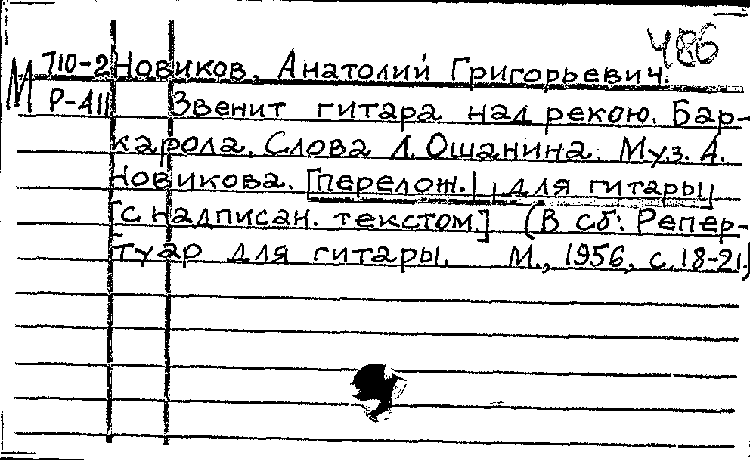 486
М 710-2 Новиков, Анатолий Григорьевич.
Р-411 Звенит гитара над рекою. Бар-
карола. Слова Л. Ошанина. Муз. А.
Новикова. [Перелож.] [для гитары]
[с надписан. текстом] (В сб: Репер-
туар для гитары. М., 1956, с. 18-21.)